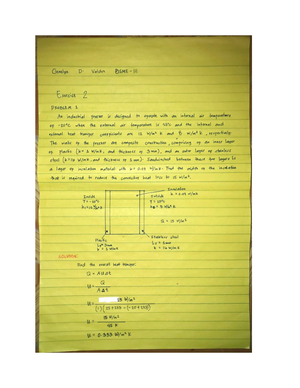 Exercise 2
PROBLEM 1
An industrial freezer is designed to operate with an internal air temperature
of -20°C when the external air temperature is 25°C and the internal and
external heat transfer coefficients are 12 W/m² K and 8 W/m² K, respectively.
The walls of the freezer are composite construction, comprising of an inner layer
of plastic (k = 1 W/m K, and thickness of 3 mm), and an outer layer of stainless
steel (k = 16 W/m K, and thickness of 1 mm). Sandwiched between these two layers is
a layer of insulation material with k = 0.07 W/m K. Find the width of the insulation
that is required to reduce the convective heat loss to 15 W/m².
Insulation
k = 0.07 W/m K
Inside
T = -20°C
Outside
T = 25°C
Q = 15 W/m²
Plastic
Stainless steel
SOLUTION:
Find the overall heat transfer:
Q = UAΔT
U = Q / AΔT
U = 15 W/m²
U = 15 W/m²
45 K
U = 0.333 W/m² K